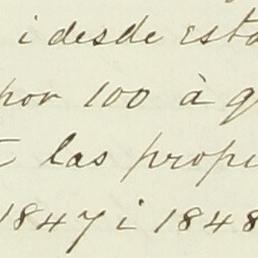 i desde esta
por 100 à q
las propi
1847 i 1848